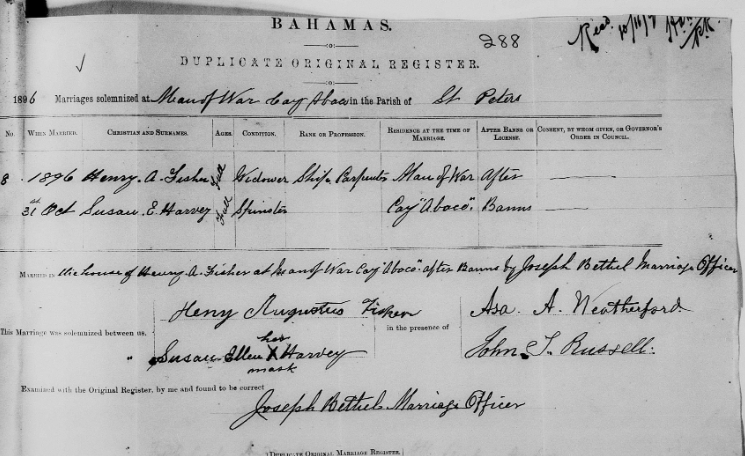 BAHAMAS.
288
DUPLICATE ORIGINAL REGISTER.
1896 Marriages solemnized at Man of War Cay Abaco in the Parish of St Peters
No. WHEN MARRIED. CHRISTIAN AND SURNAMES. AGES. CONDITION. RANK OR PROFESSION. RESIDENCE AT THE TIME OF MARRIAGE. AFTER BANNS OR LICENSE. CONSENT, BY WHOM GIVEN, OR GOVERNOR'S ORDER IN COUNCIL.
8 1896 Henry. A. Fisher Full Widower Ship Carpenter Man of War After
31st Oct Susan. E. Harvey Full Spinster Cay "Abaco". Banns
MARRIED in the house of Henry. A. Fisher at Man of War Cay "Abaco". after Banns by Joseph Bethel Marriage Officer
Henry Augustus Fisher
Asa A. Weatherford.
This Marriage was solemnized between us. in the presence of
" Susan Ellen X Harvey
her
mark
John. T. Russell.
Examined with the Original Register, by me and found to be correct
Joseph Bethel Marriage Officer
(DUPLICATE ORIGINAL MARRIAGE REGISTER.